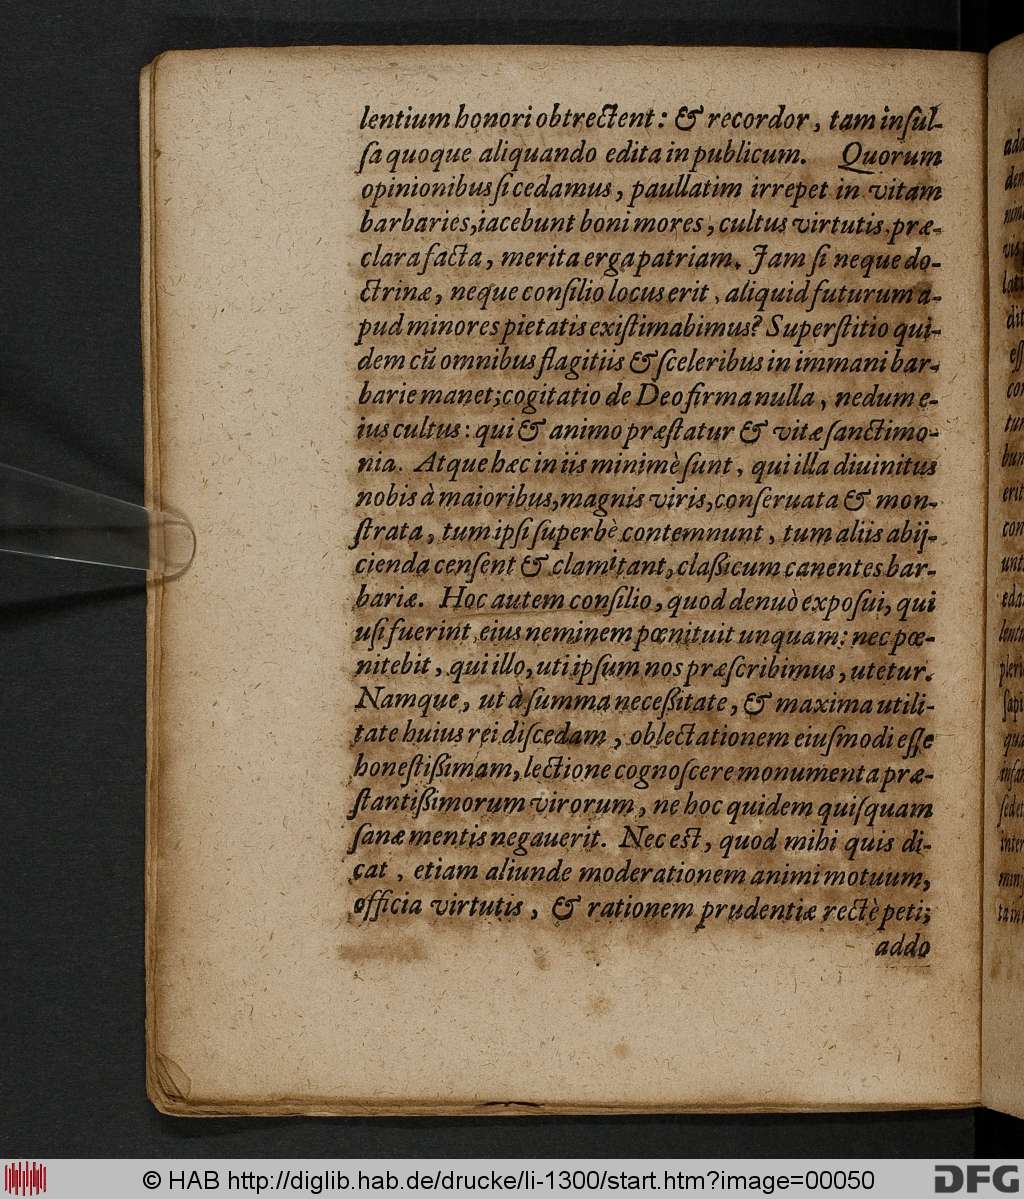 lentium honori obtrectent: & recordor, tam inſul-
ſa quoque aliquando edita in publicum. Quorum
opinionibus ſi cedamus, paullatim irrepet in vitam
barbaries, iacebunt boni mores, cultus virtutis præ-
clara facta, merita erga patriam. Jam ſi neque do-
ctrinæ, neque conſilio locus erit, aliquid futurum a-
pud minores pietatis exiſtimabimus? Superſtitio qui-
dem cū omnibus flagitiis & ſceleribus in immani bar-
barie manet; cogitatio de Deo firma nulla, nedum e-
ius cultus: qui & animo præſtatur & vitæ ſanctimo-
nia. Atque hæc in iis minimè ſunt, qui illa diuinitus
nobis à maioribus, magnis viris, conſeruata & mon-
ſtrata, tum ipſi ſuperbè contemnunt, tum aliis abij-
cienda cenſent & clamitant, claßicum canentes bar-
bariæ. Hoc autem conſilio, quod denuò expoſui, qui
uſi fuerint, eius neminem pœnituit unquam: nec pœ-
nitebit, qui illo, uti ipſum nos præſcribimus, utetur.
Namque, ut à ſumma neceßitate, & maxima utili-
tate huius rei diſcedam, oblectationem eiuſmodi eſſe
honeſtißimam, lectione cognoſcere monumenta præ-
ſtantißimorum virorum, ne hoc quidem quiſquam
ſanæ mentis negauerit. Nec est, quod mihi quis di-
cat, etiam aliunde moderationem animi motuum,
officia virtutis, & rationem prudentiæ rectè peti;
addo
© HAB http://diglib.hab.de/drucke/li-1300/start.htm?image=00050
DFG